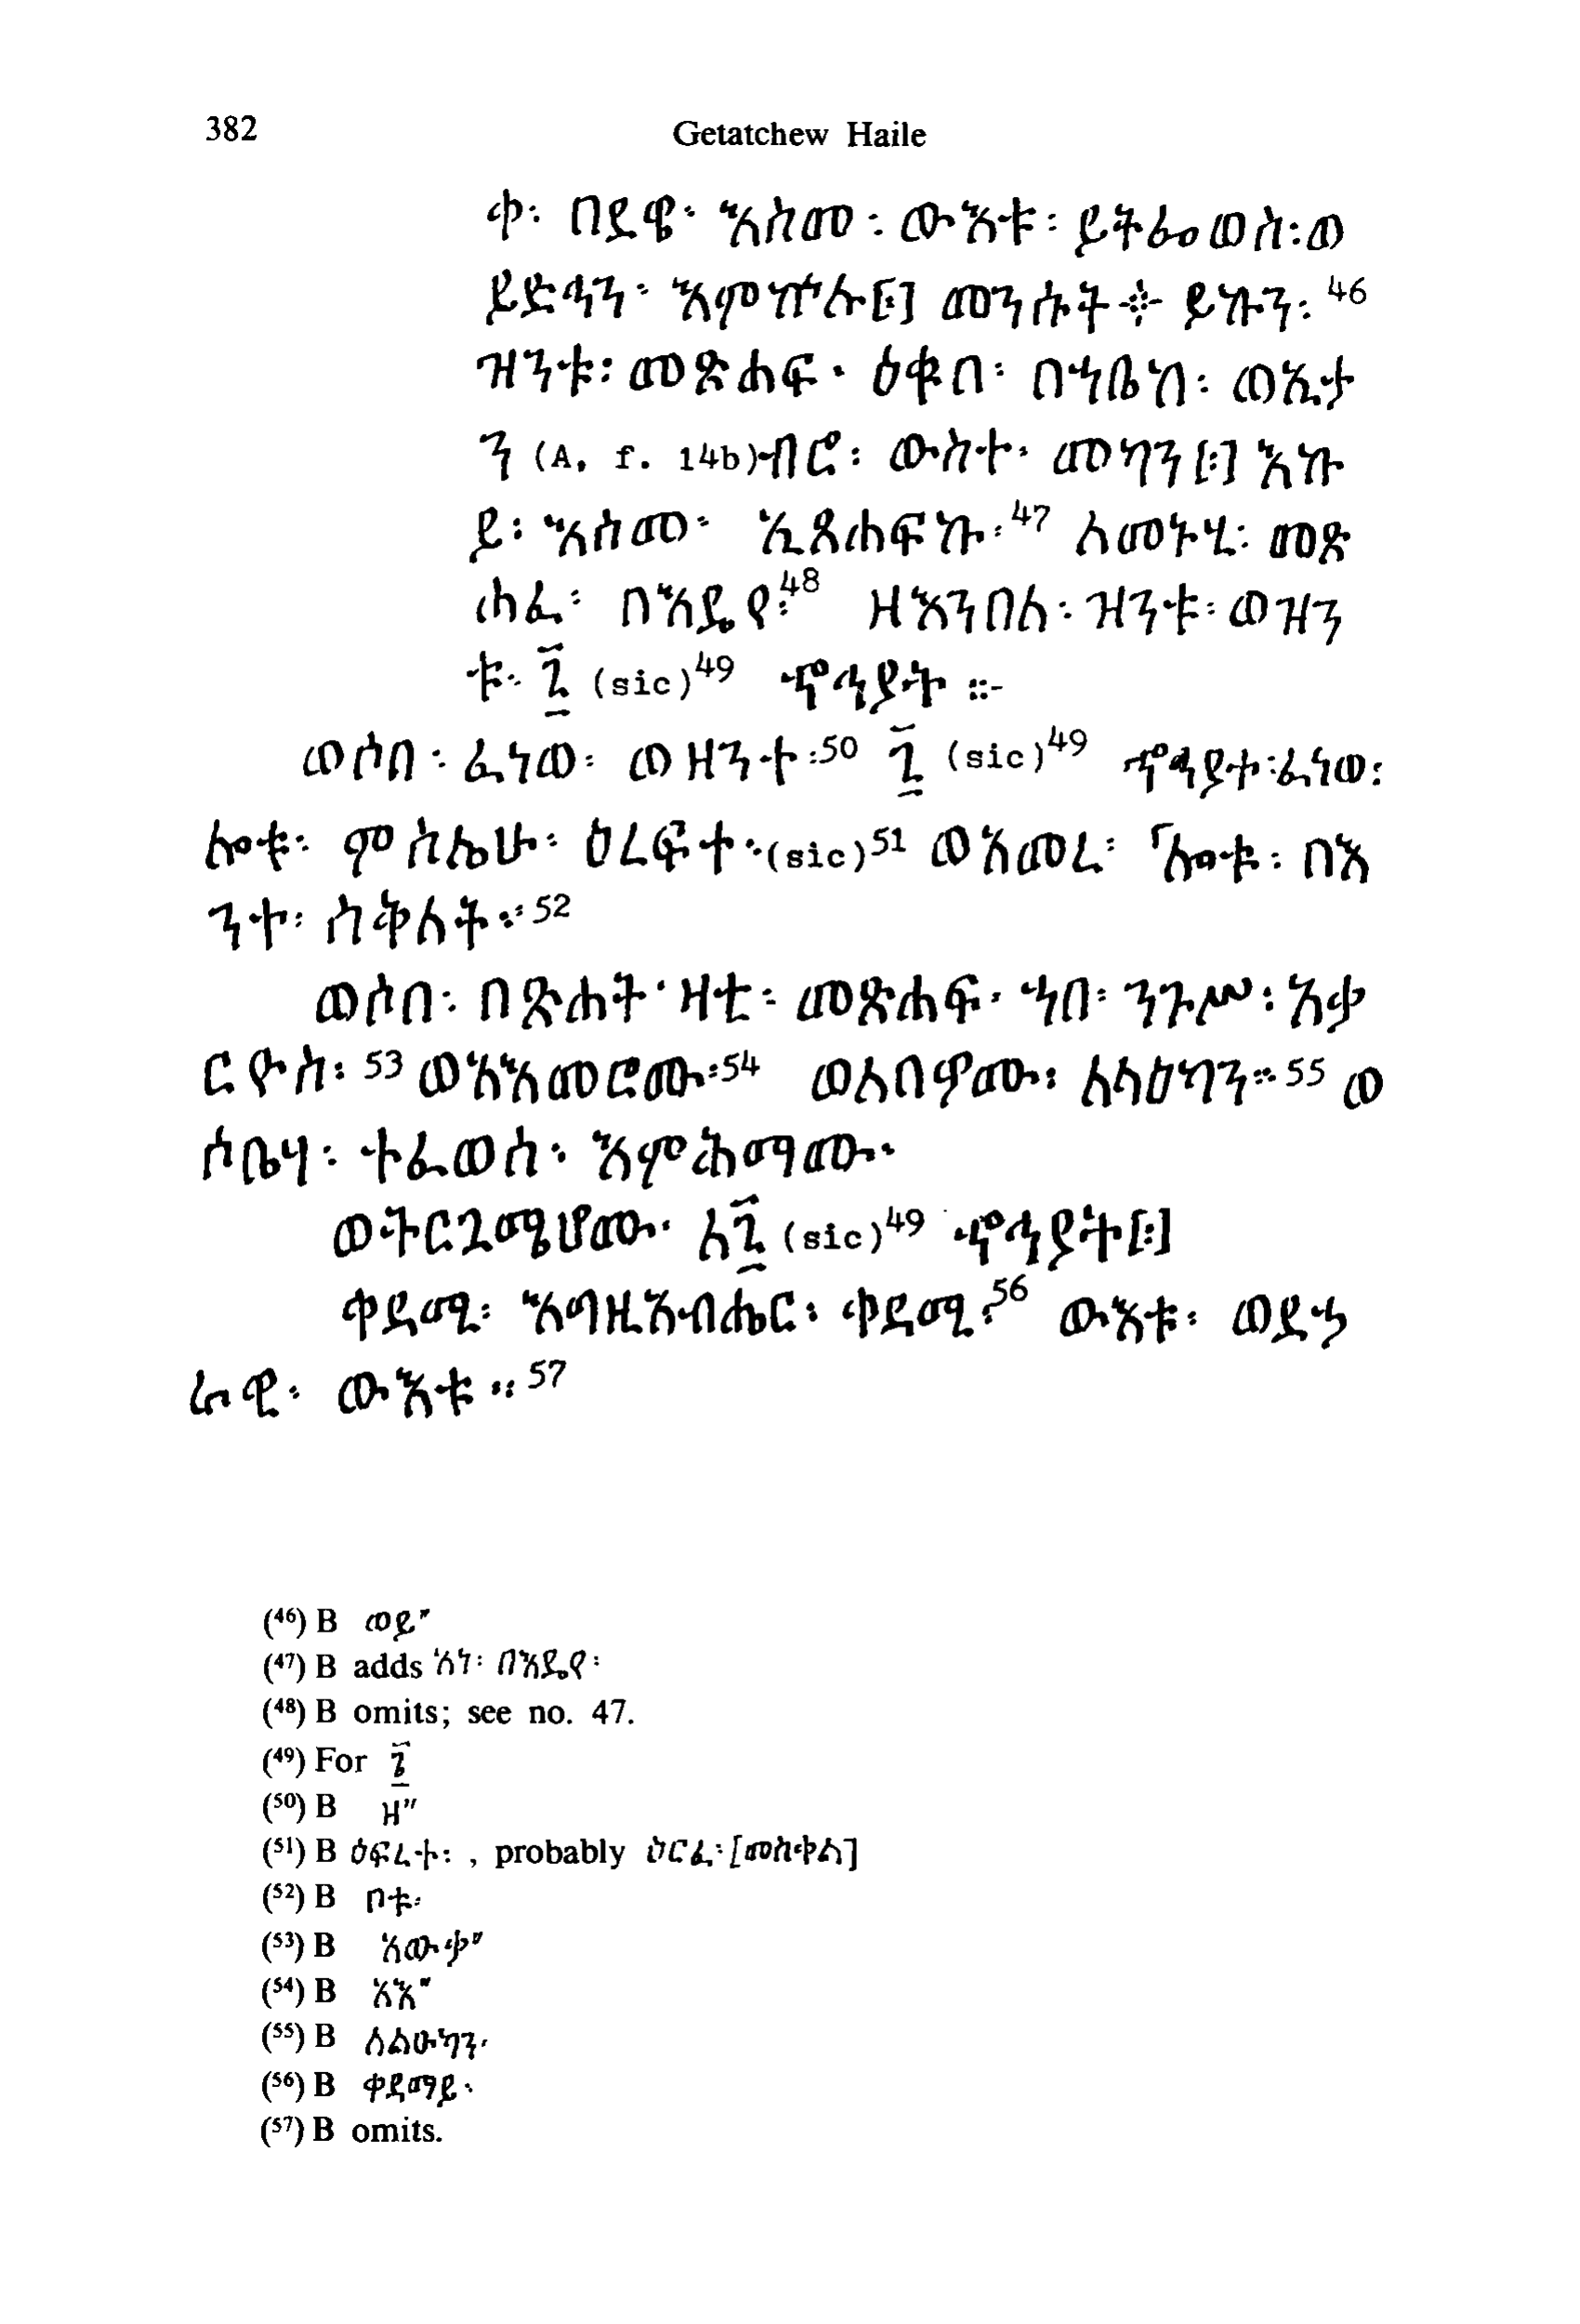 382 Getatchew Haile
ቀ፡ በደዌ፡ እስመ፡ ውእቱ፡ ይትፌወስ፡ወ
ይድኃን፡ እምኵሉ[፡] መንሱት ፨ ይኩን፡ 46
ዝንቱ፡ መጽሐፍ፡ ዕቁበ፡ በኀቤከ፡ ወኢታ
ን (A, f. 14b)ብሮ፡ ውስተ፡ መካን[፡] እኩ
ይ፡ እስመ፡ ኢጸሐፍኩ፡47 ለመኑሂ፡ መጽ
ሐፈ፡ በእዴየ፡48 ዘእንበለ፡ ዝንቱ፡ ወዝን
ቱ፡ ፤ (sic)49 ኆኅያት ።-
ወሶበ፡ ፈነወ፡ ወዘንተ፡50 ፤ (sic)49 ኆኃያተ፡ፈነወ፡
ሎቱ፡ ምስሌሁ፡ ዕረፍተ፡(sic)51 ወአመረ፡ ⸀ሎቱ፡ በእ
ንተ፡ ስቅለት፡፡52
ወሶበ፡ በጽሐት፡ ዛቲ፡ መጽሐፍ፡ ኀበ፡ ንጉሥ፡ አቃ
ርዮስ፡ 53 ወአእመሮሙ፡54 ወአበዎሙ፡ ለላዕካን፡፡ 55 ወ
ሶቤሃ፡ ተፈወሰ፡ እምሕማሙ፡
ወትርጓሜሆሙ፡ ለ፤ (sic)49 ኆኅያት[፡]
ቀዳሚ፡ እግዚአብሔር፡ ቀዳሚ፡56 ውእቱ፡ ወደኃ
ራዊ፡ ውእቱ ። 57
(46) B ወይ"
(47) B adds አነ፡ በእዴየ፡
(48) B omits; see no. 47.
(49) For ፯
(50) B ዘ"
(51) B ዕፍረተ፡ , probably ዕርፈ፡[መስቀል]
(52) B ቦቱ፡
(53) B አውቃ"
(54) B አእ"
(55) B ለልዑካን፡
(56) B ቀዳማይ፡
(57) B omits.